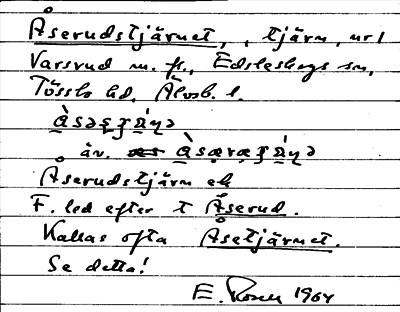 Åserudstjärnet, , tjärn, nr 1
Varsrud m. fl., Edsleskogs sn,
Tössbo hd, Älvsb. l.
åv.
Åserudstjärn ek
F. led efter t Åserud.
Kallas ofta Åsetjärnet.
Se detta!
E. Rosen 1964